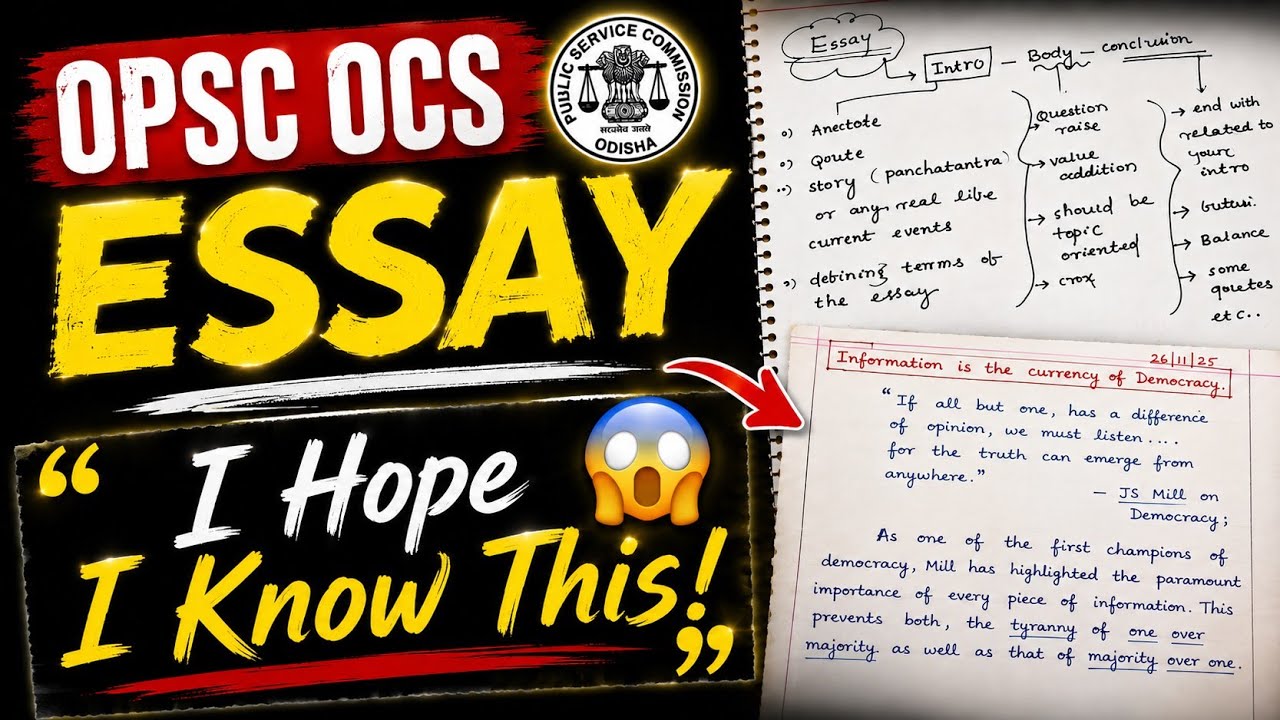 OPSC OCS
PUBLIC SERVICE COMMISSION
सत्यमेव जयते
ODISHA
ESSAY
“ I Hope
I Know This! ”
Essay
Intro – Body – conclusion
Anectote
Qoute
story (panchatantra)
or any real like
current events
debining terms of
the essay
Question
raise
value
addition
should be
topic
oriented
crox
end with
related to
your
intro
Balance
some
qoutes
etc..
26/11/25
Information is the currency of Democracy.
“ If all but one, has a difference
of opinion, we must listen ....
for the truth can emerge from
anywhere.”
– JS Mill on
Democracy;
As one of the first champions of
democracy, Mill has highlighted the paramount
importance of every piece of information. This
prevents both, the tyranny of one over
majority as well as that of majority over one.